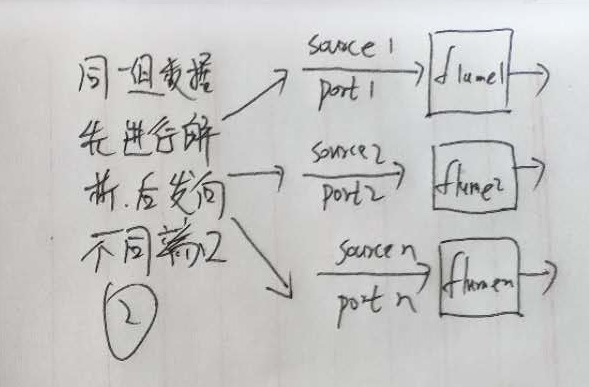 同一组数据
先进行解
析.后发向
不同端口
②
source 1
port 1
flume1
source 2
port 2
flume2
source n
port n
flumen